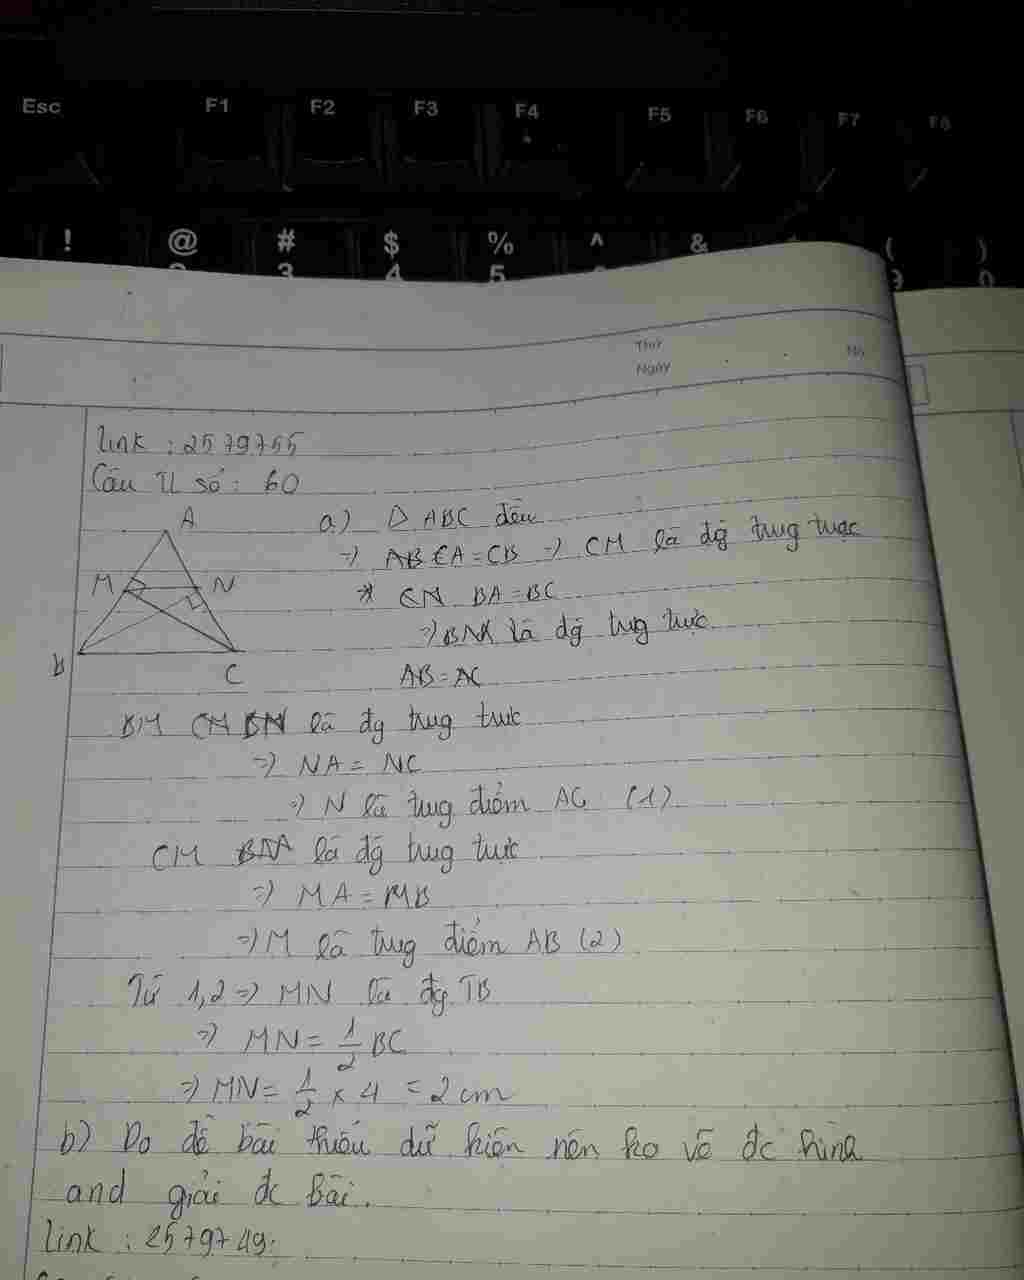 Esc F1 F2 F3 F4 F5 F6 F7 F8
! @ # $ % ^ & ( )
3 4 5 0
Thứ
Ngày No
link : 2579755
Câu TL số : 60
A
M N
B
C
a) △ ABC đều
=> AB CA = CB => CM là đg trug trực
* CN BA = BC
=> BN là đg trug trực
AB = AC
BM CM BN là đg trug trực
=> NA = NC
=> N là trug điểm AC (1)
CM BN là đg trug trực
=> MA = MB
=> M là trug điểm AB (2)
Từ 1,2 => MN là đg TB
=> MN = 1/2 BC
=> MN = 1/2 x 4 = 2 cm
b) Do đề bài thiếu dữ kiện nên ko vẽ đc hình
and giải đc bài.
link : 2579749.